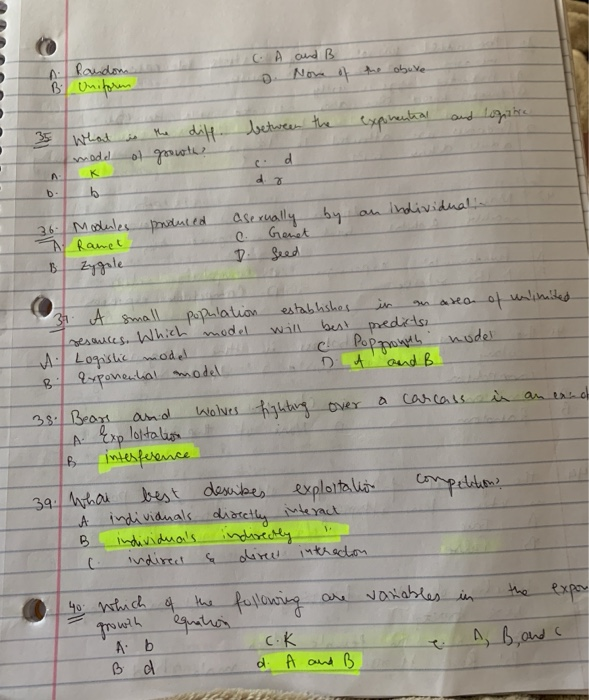 A. Random C. A and B
B. Uniform D. None of the above
35 What is the diff. between the exponential and logistic
model of growth?
A. K c. d
b. b d r
36. Modules produced asexually by an individual:-
A. Ramet C. Genet
B Zygote D. Seed
37. A small population establishes in an area of unlimited
resources. Which model will best predicts?
A. Logistic model C Popgrowth model
B. Exponential model D. A and B
38. Bears and wolves fighting over a carcass is an
A. Exploitation
B interference
39. What best describes exploitation competition?
A individuals directly interact
B individuals indirectly
C. indirect & direct interaction
40. Which of the following are variables in the expo
growth equation
A. b C. K e. A, B, and C
B d d. A and B